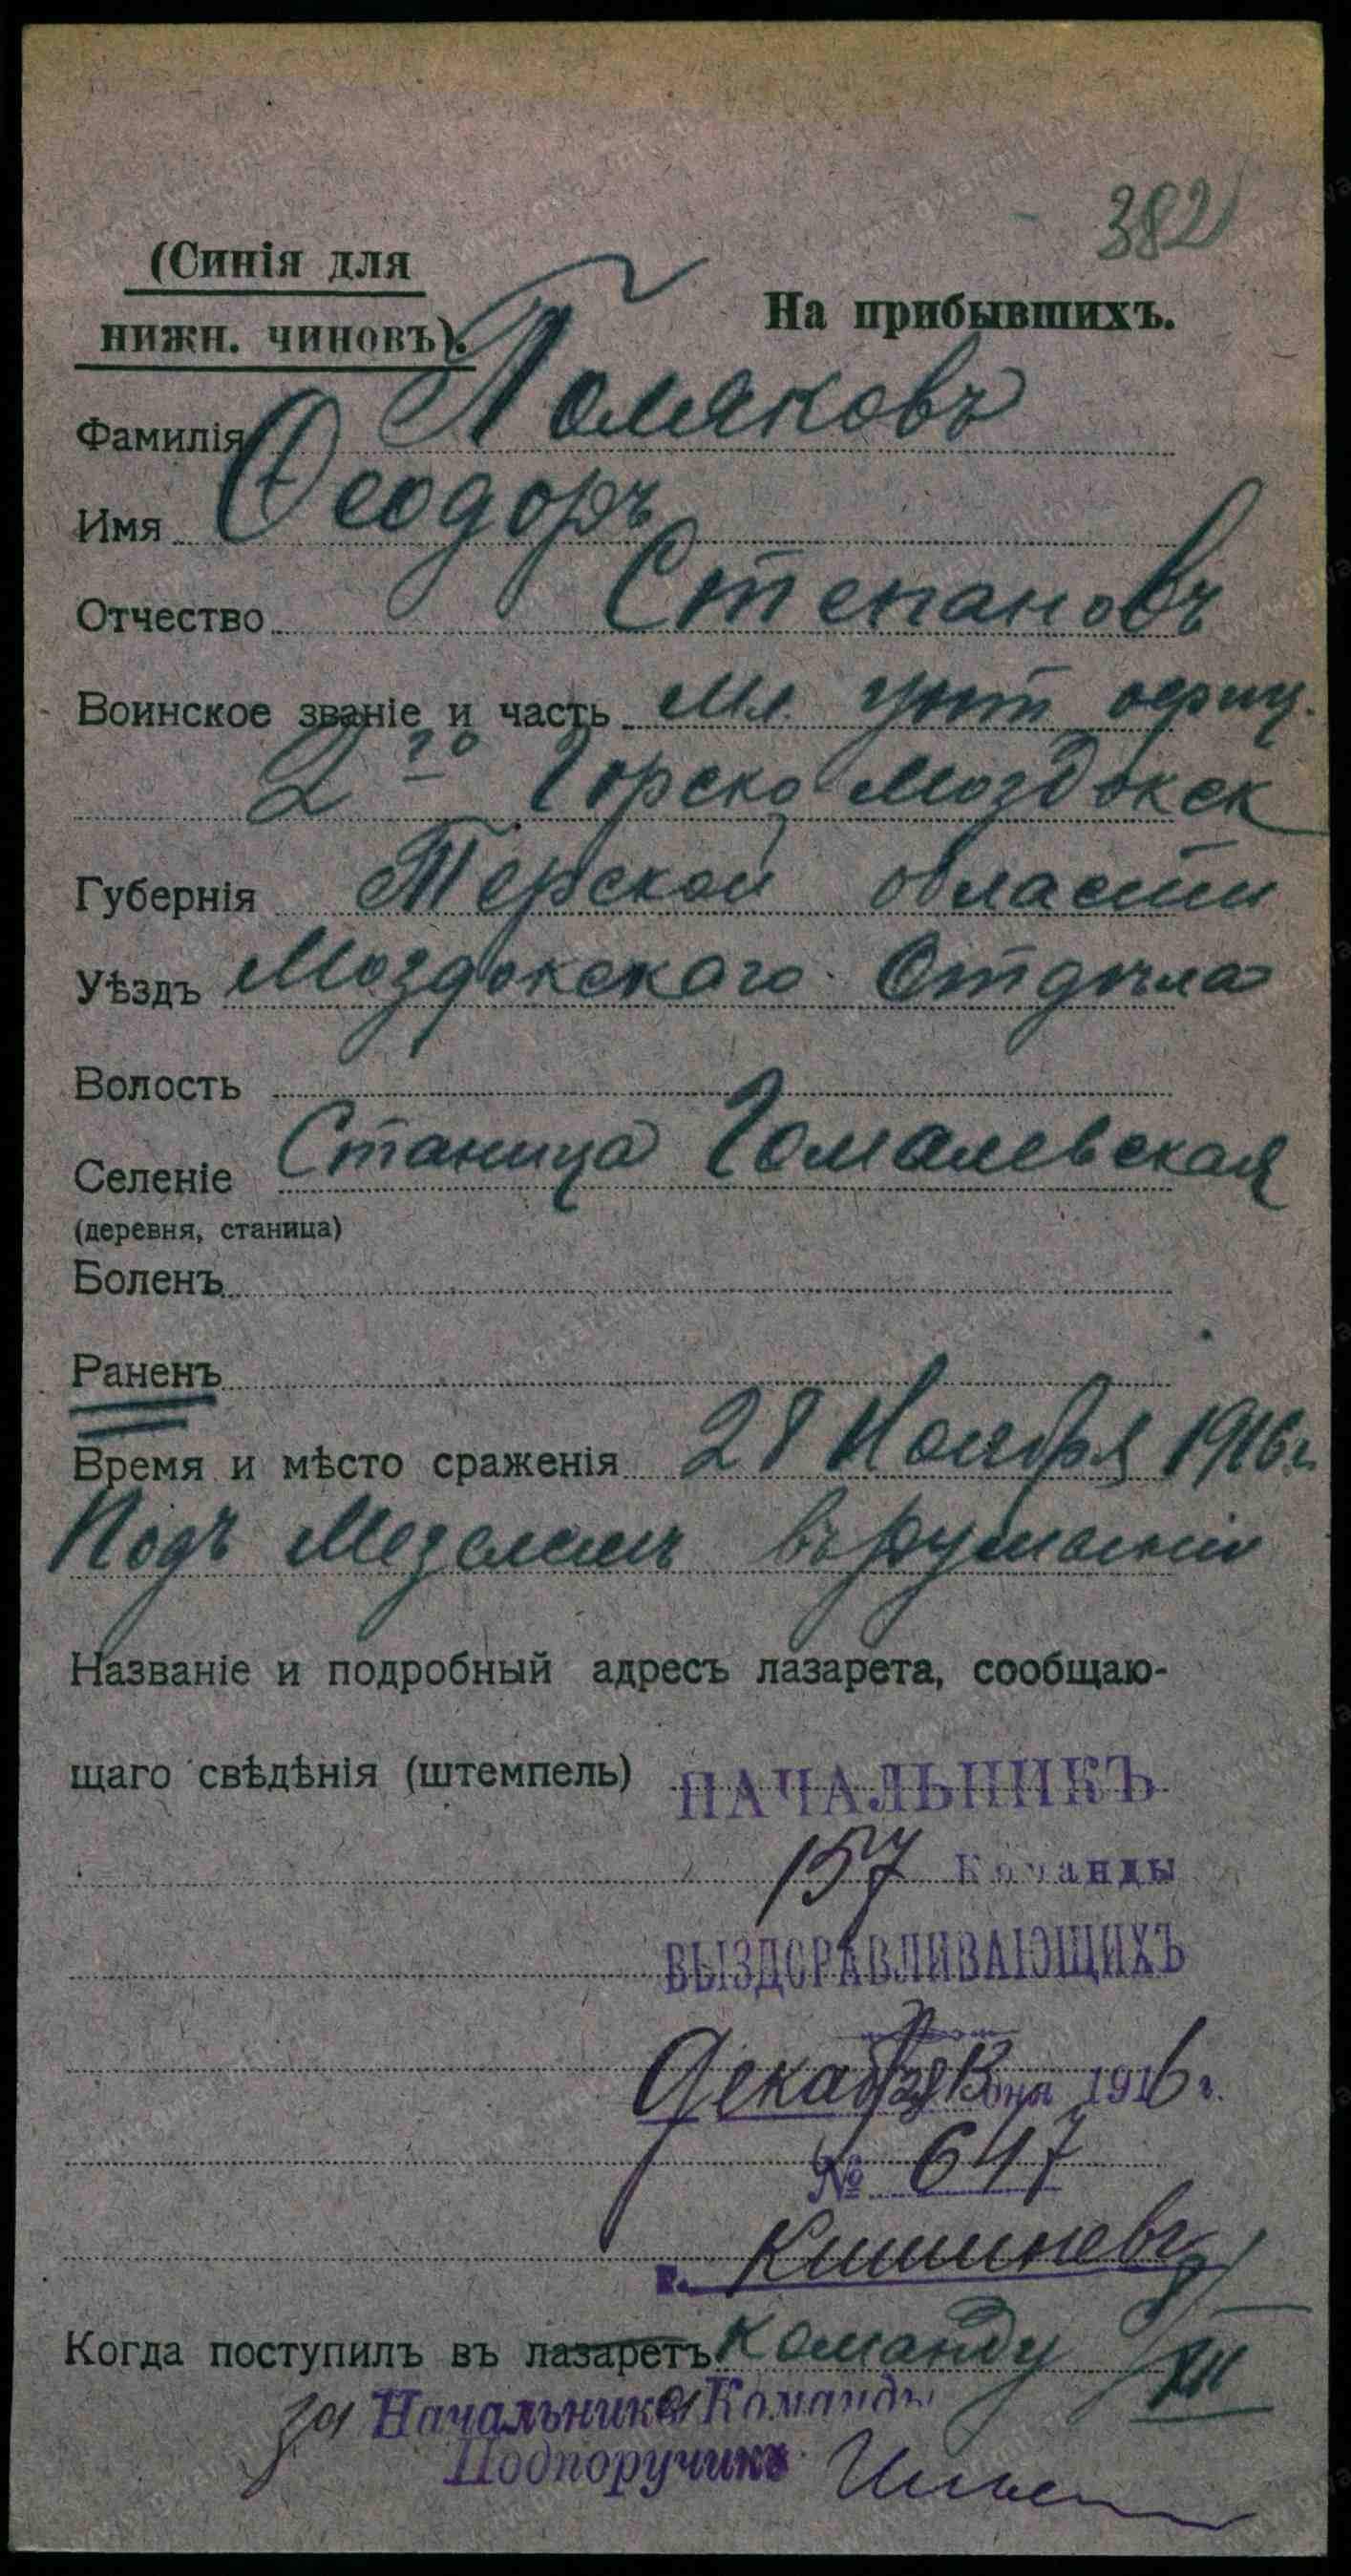 382
(Синія для
нижн. чиновъ).
На прибывшихъ.
Фамилія Поляковъ
Имя Ѳеодоръ
Отчество Степановъ
Воинское званіе и часть Мл. унт офиц.
2го Горско Моздокск
Губернія Терской области
Уѣздъ Моздокскаго Отдѣла
Волость
Селеніе Станица
(деревня, станица)
Боленъ
Раненъ
Время и мѣсто сраженія 28 Ноября 1916 г.
Подъ въ румыніи
Названіе и подробный адресъ лазарета, сообщаю-
щаго свѣдѣнія (штемпель) НАЧАЛЬНИКЪ
157 Команды
ВЫЗДОРАВЛИВАЮЩИХЪ
Декабря 13 дня 1916 г.
№ 647
г. Кишиневъ
Когда поступилъ въ лазаретъ команду 8/XII
за Начальника Команды
Подпоручикъ